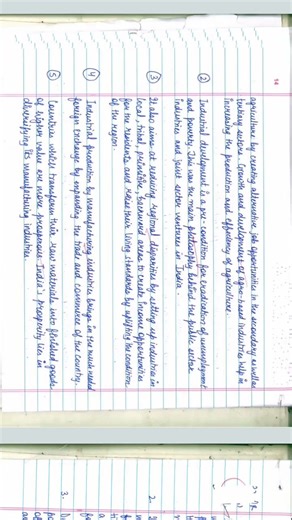 agriculture by creating alternative job opportunities in the secondary as well as
tertiary sectors. Growth and development of agro-based industries help in
increasing the production and efficiency of agriculture.
② Industrial development is a pre-condition for eradication of unemployment
and poverty. This was the main philosophy behind the public sector
industries and joint sector ventures in India.
③ It also aims at reducing regional disparities by setting up industries in
local, tribal, backward areas to create income opportunities
for the residents and raise their living standards by uplifting the condition
of the region.
④ Industrial production by manufacturing industries brings in the much needed
foreign exchange by expanding the trade and commerce of the country.
⑤ Countries which transform their raw materials into finished goods
of higher value are more prosperous. India's prosperity lies in
diversifying its manufacturing industries.
2.
3.